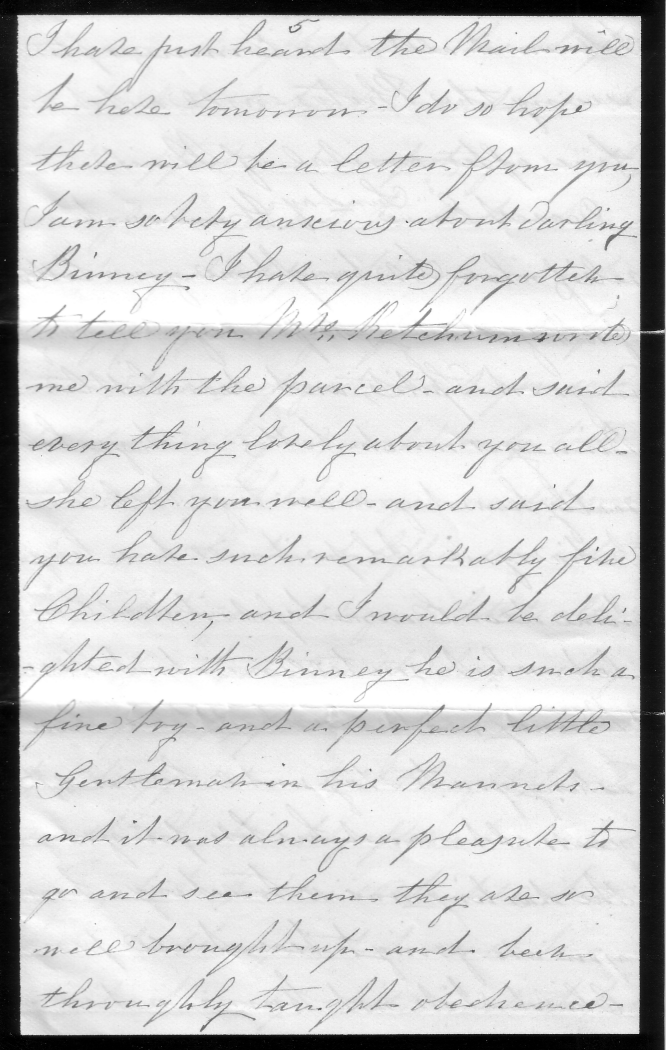 5
I have just heard the Mail will
be here tomorrow - I do so hope
there will be a letter from you,
I am so very anxious about darling
Binney - I have quite forgotten
to tell you Mrs. Ketchum wrote
me with the parcel - and said
every thing lovely about you all -
she left you well - and said
you have such remarkably fine
Children, and I would be deli-
-ghted with Binney he is such a
fine boy - and a perfect little
Gentleman in his Manners -
and it was always a pleasure to
go and see them they are so
well brought up - and been
throughly taught obedience -